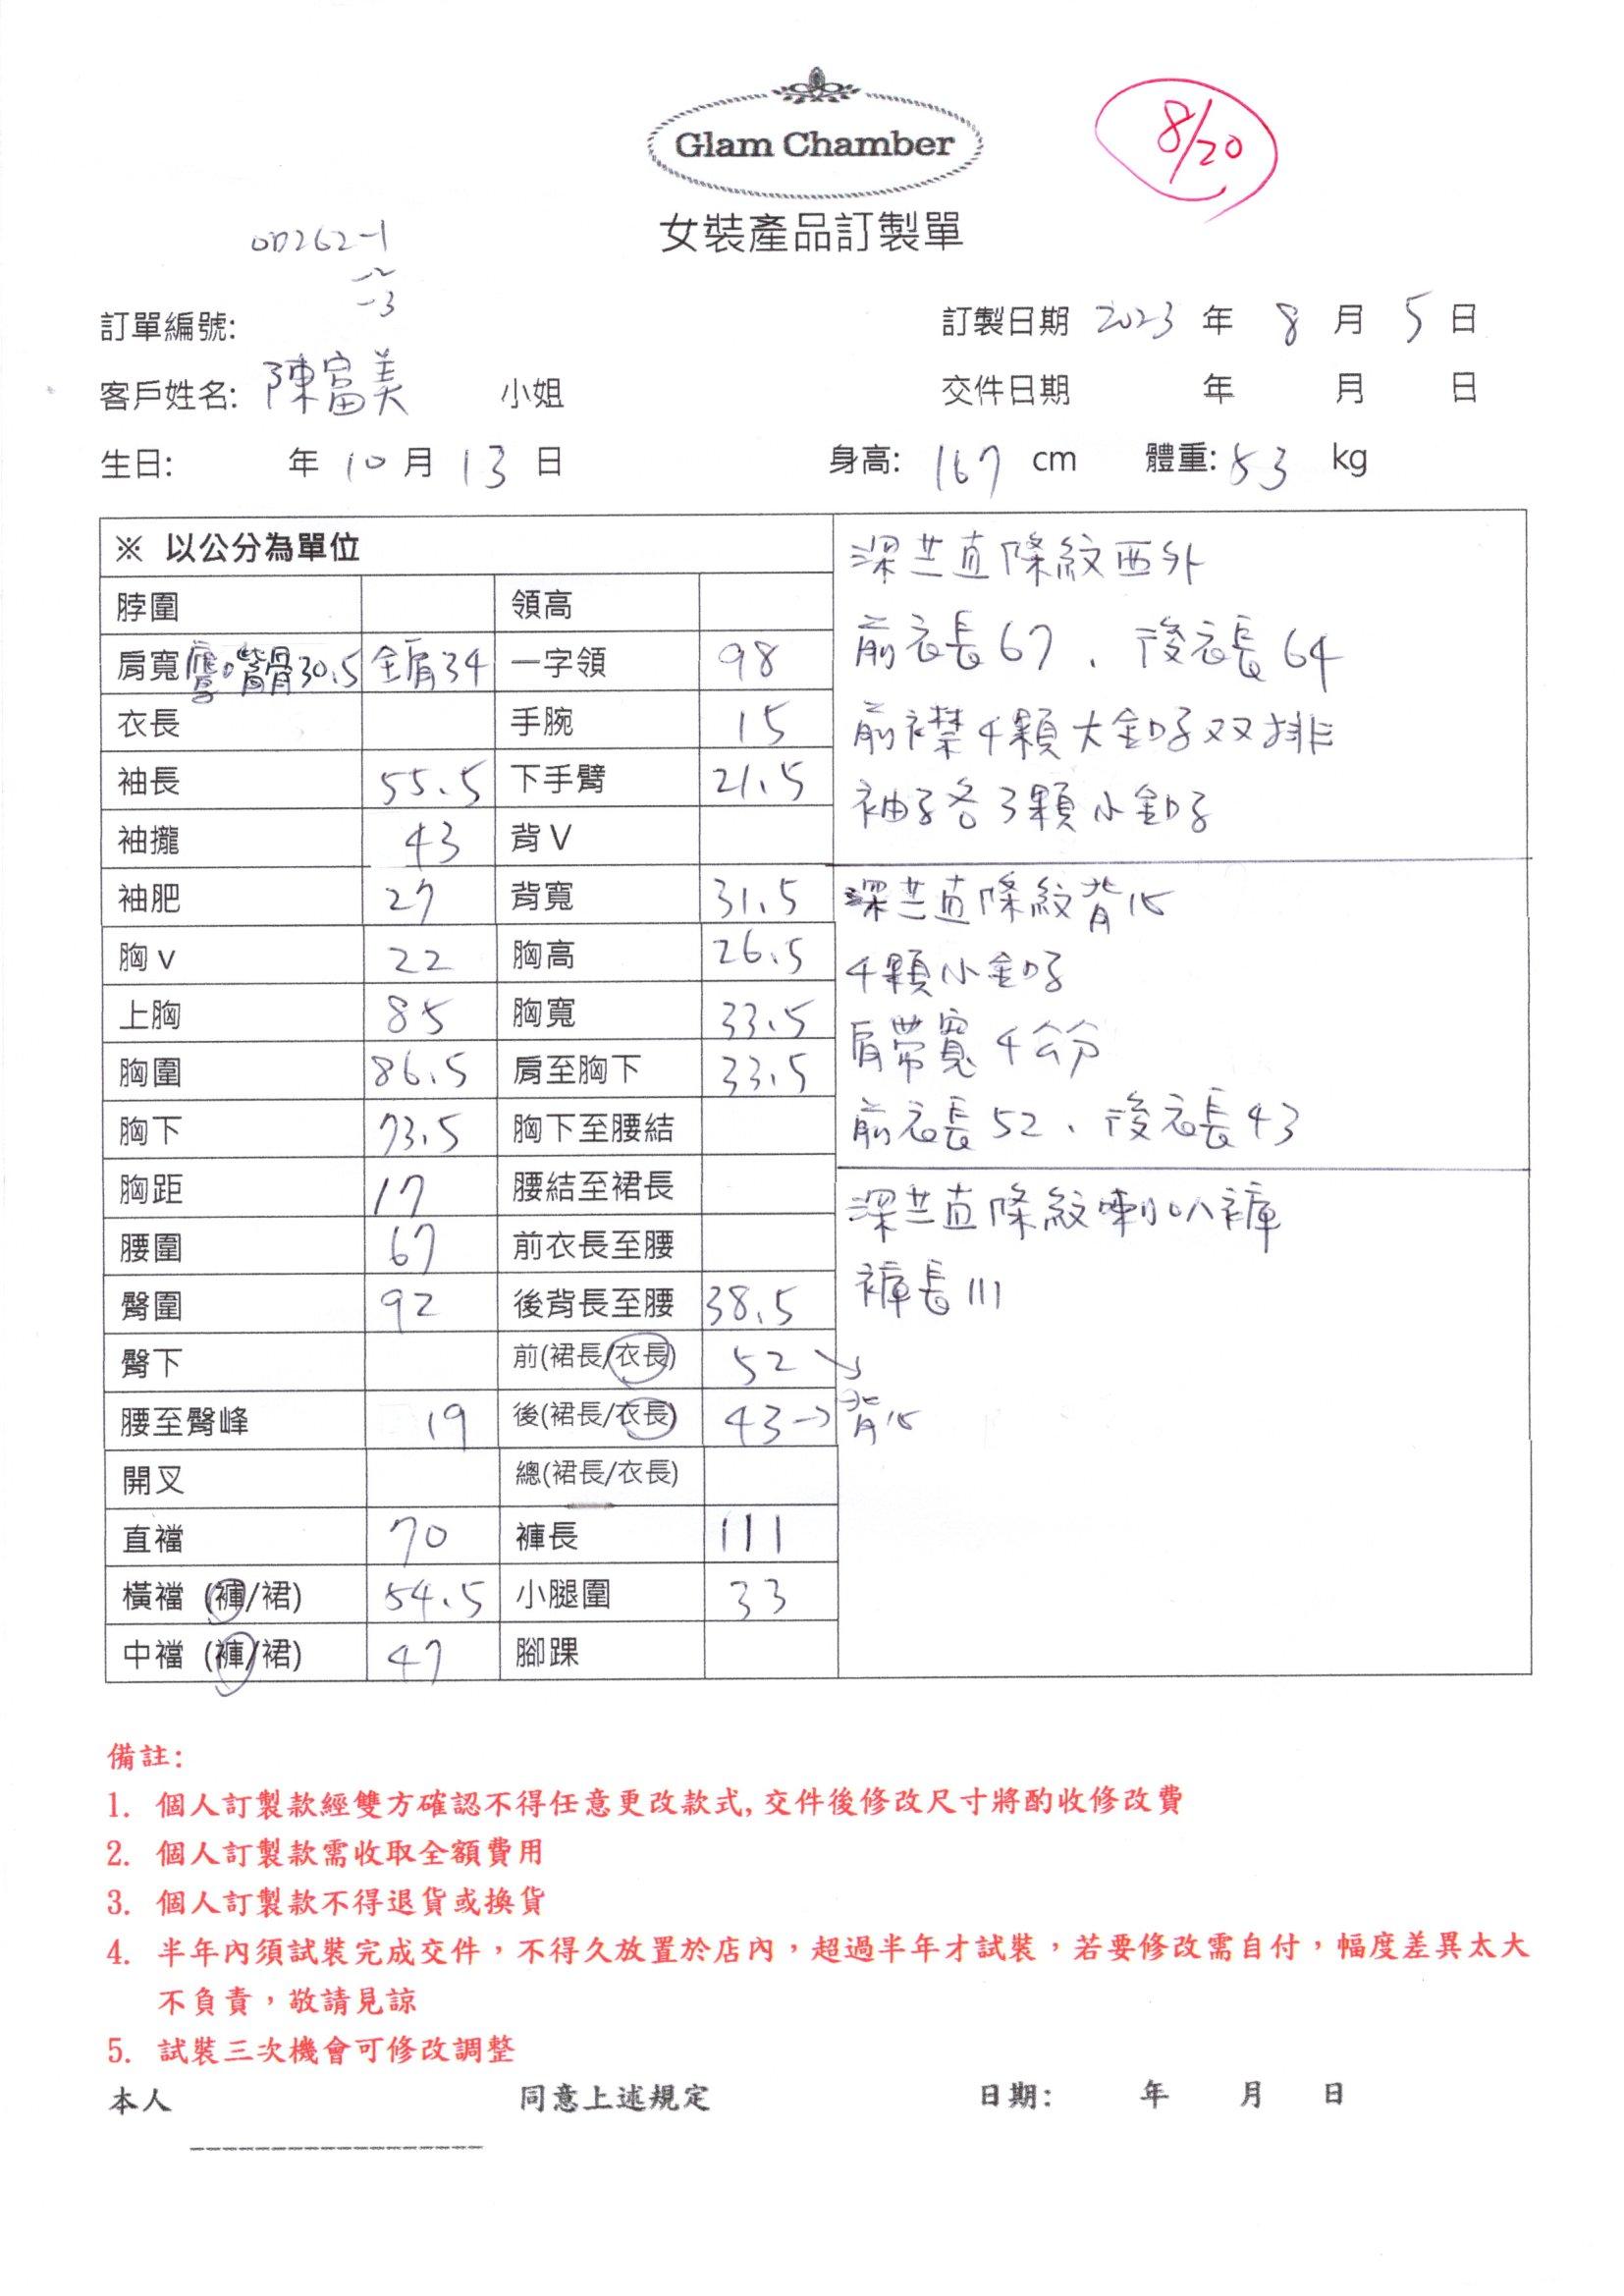 Glam Chamber
8/20
女裝產品訂製單
OD262-1
-2
-3
訂單編號:
訂製日期 2023 年 8 月 5 日
客戶姓名: 陳富美 小姐
交件日期 年 月 日
生日: 年 10 月 13 日
身高: 167 cm 體重: 53 kg
※ 以公分為單位
脖圍 領高
肩寬 鷹嘴骨30.5 全肩34 一字領 98
衣長 手腕 15
袖長 55.5 下手臂 21.5
袖攏 43 背V
袖肥 27 背寬 31.5
胸v 22 胸高 26.5
上胸 85 胸寬 33.5
胸圍 86.5 肩至胸下 33.5
胸下 73.5 胸下至腰結
胸距 17 腰結至裙長
腰圍 67 前衣長至腰
臀圍 92 後背長至腰 38.5
臀下 前(裙長/衣長) 52 →
腰至臀峰 19 後(裙長/衣長) 43 → 背心
開叉 總(裙長/衣長)
直襠 70 褲長 111
橫襠 (褲/裙) 54.5 小腿圍 33
中襠 (褲/裙) 47 腳踝
深芷直條紋西外
前衣長67、後衣長64
前襟4顆大釦子双排
袖子各3顆小釦子
深芷直條紋背心
4顆小釦子
肩帶寬4公分
前衣長52、後衣長43
深芷直條紋喇叭褲
褲長111
備註:
1. 個人訂製款經雙方確認不得任意更改款式,交件後修改尺寸將酌收修改費
2. 個人訂製款需收取全額費用
3. 個人訂製款不得退貨或換貨
4. 半年內須試裝完成交件，不得久放置於店內，超過半年才試裝，若要修改需自付，幅度差異太大
不負責，敬請見諒
5. 試裝三次機會可修改調整
本人 同意上述規定 日期: 年 月 日